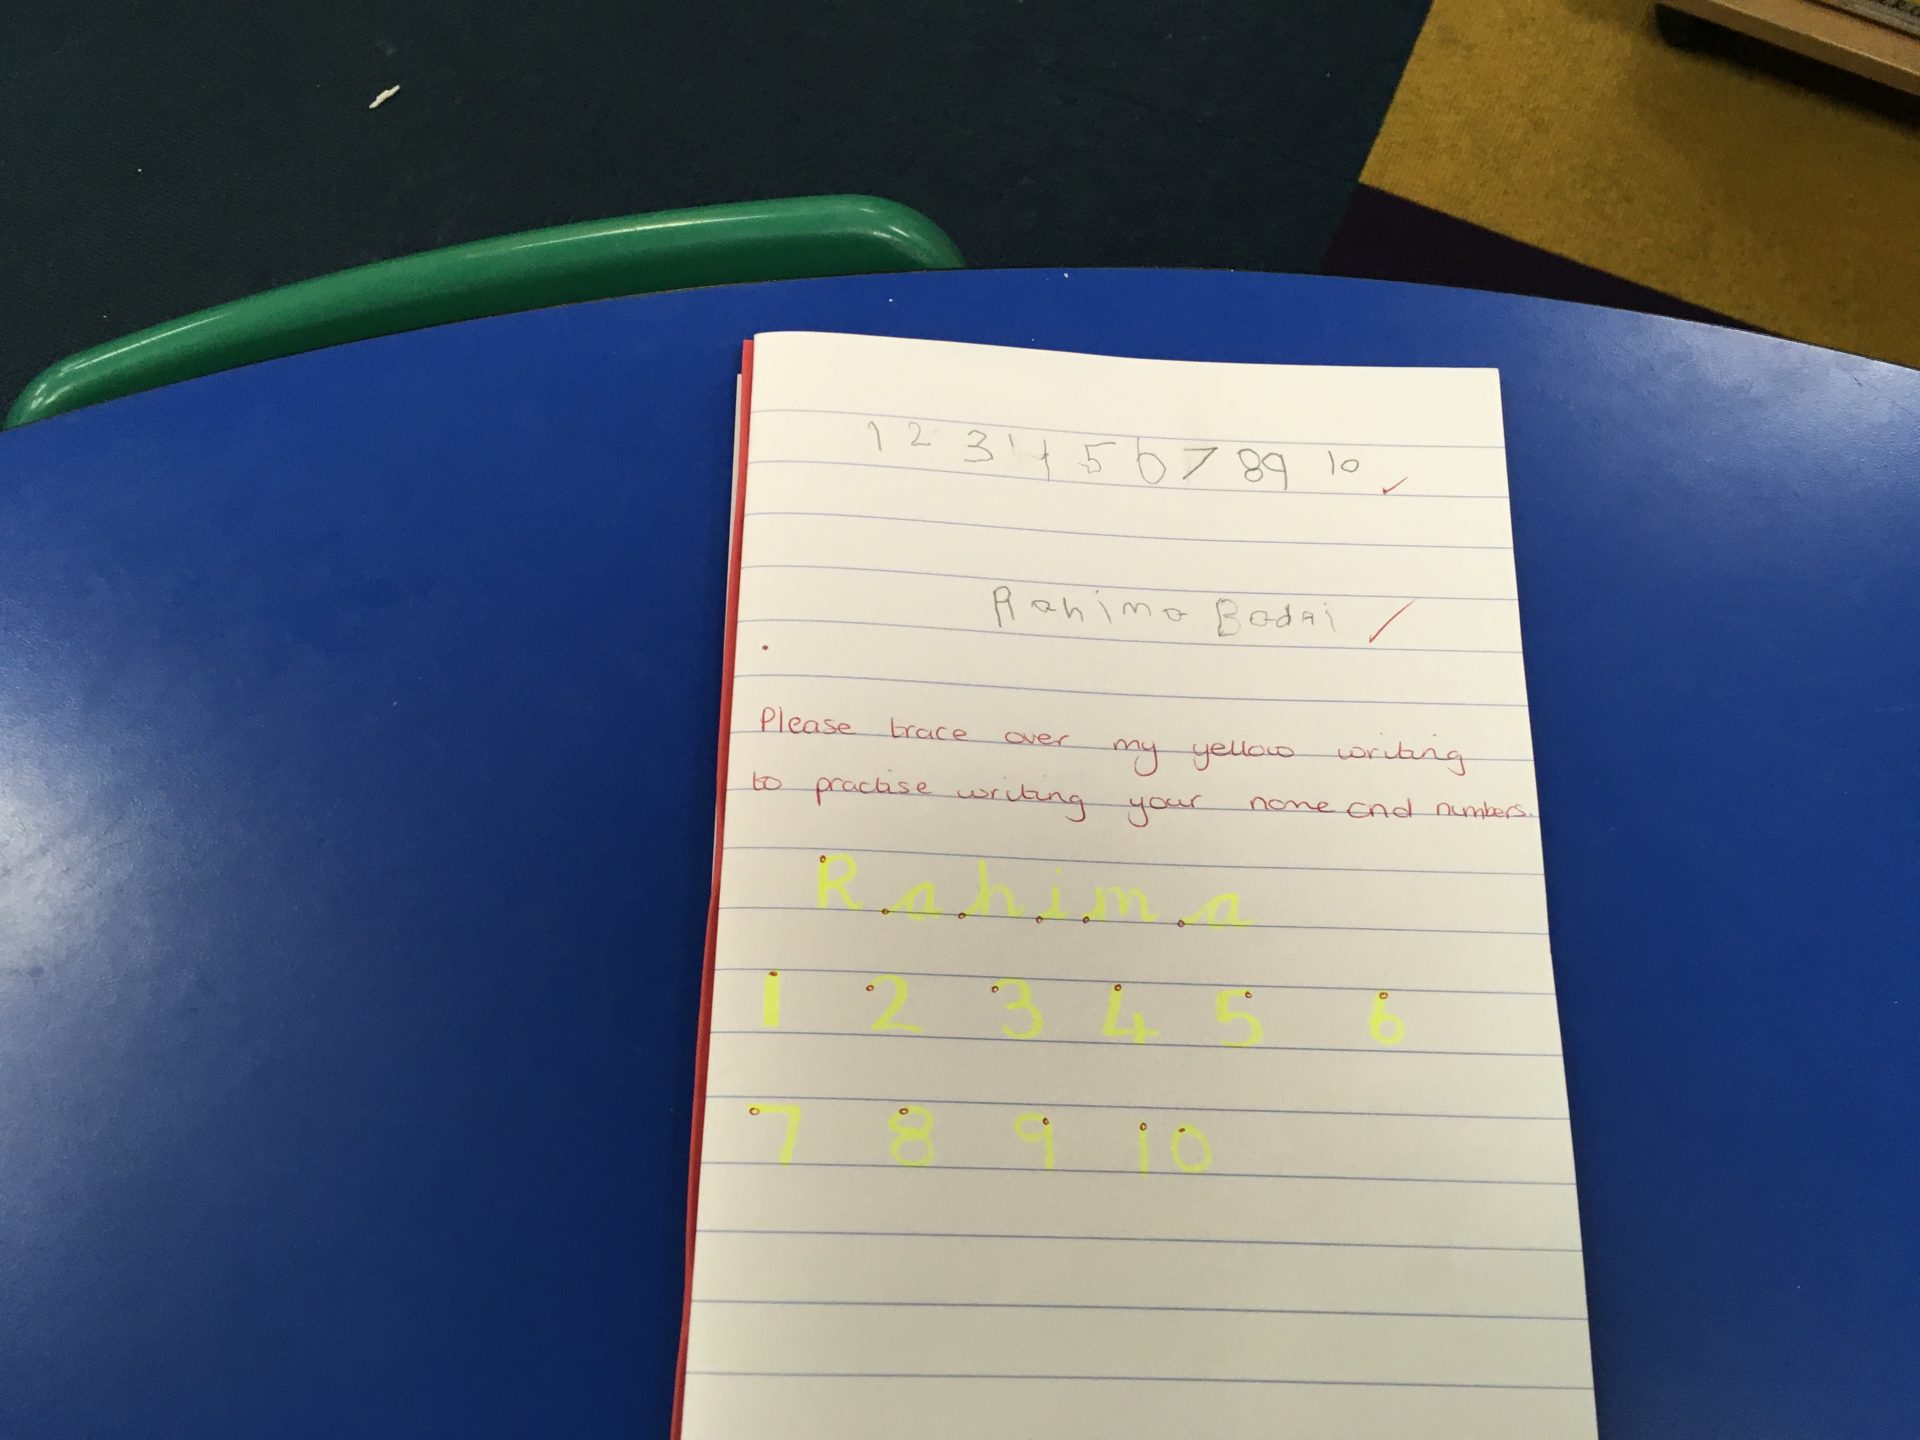 1 2 3 4 5 6 7 8 9 10
Rahima Badai
Please trace over my yellow writing
to practise writing your name and numbers.
Rahima
1 2 3 4 5 6
7 8 9 10